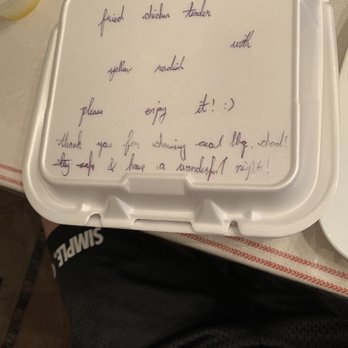 fried chicken tender
with
yellow radish
please enjoy it! :)
thank you for choosing bbq, dood!
stay safe & have a wonderful night!
SIMPLE.